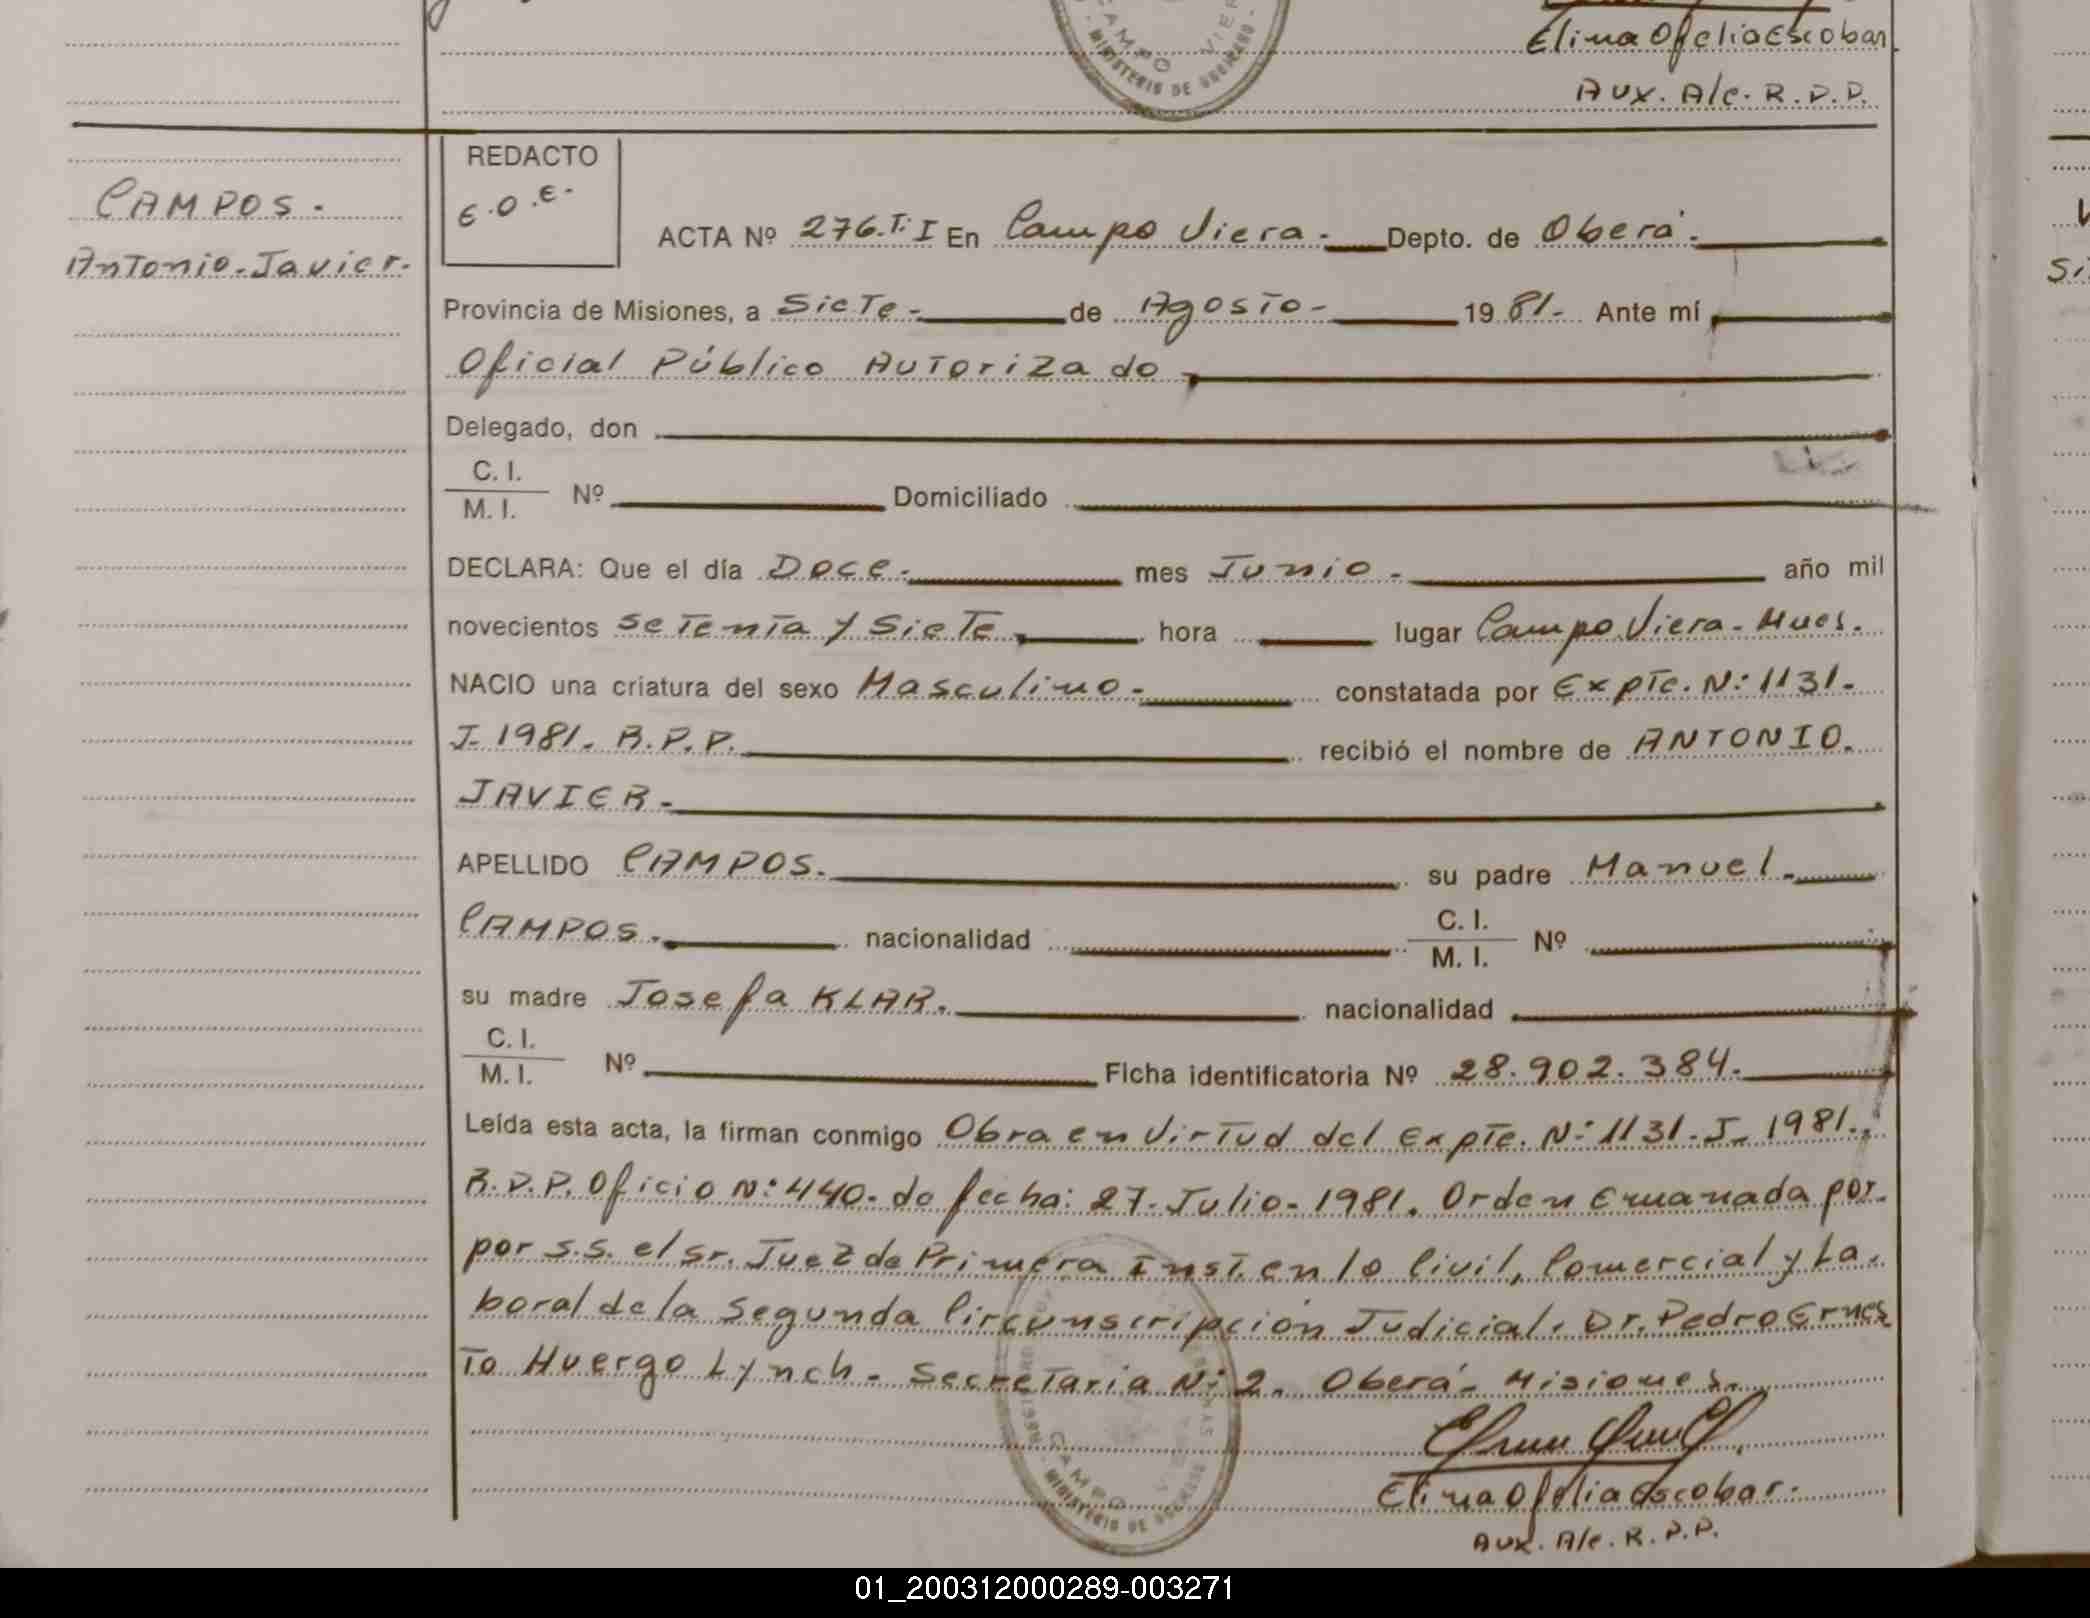 Elina Ofelia Escobar
Aux. A/c. R.P.P.
CAMPOS.
Antonio Javier.
REDACTO
E.O.E.
ACTA Nº 276.T:I En Campo Viera.- Depto. de Oberá.-
Provincia de Misiones, a Siete- de Agosto- 1981- Ante mí
Oficial Público Autorizado
Delegado, don
C. I.
M. I.
Nº Domiciliado
DECLARA: Que el día Doce- mes Junio- año mil
novecientos setenta y siete hora lugar Campo Viera-Mnes.
NACIO una criatura del sexo Masculino- constatada por Expte. N:1131-
J-1981. R.P.P. recibió el nombre de ANTONIO.
JAVIER-
APELLIDO CAMPOS. su padre Manuel-
CAMPOS. nacionalidad C. I.
M. I.
Nº
su madre Josefa KLAR. nacionalidad
C. I.
M. I.
Nº Ficha identificatoria Nº 28.902.384.
Leída esta acta, la firman conmigo Obra en Virtud del Expte. N:1131-J-1981.
R.P.P. Oficio N:440-de fecha: 27-Julio-1981. Orden Emanada por
por S.S. el Sr. Juez de Primera Inst. en lo Civil, Comercial y La-
boral de la Segunda Circunscripción Judicial. Dr. Pedro Ernes
to Huergo Lynch- Secretaria N:2. Oberá- Misiones.
REGISTRO
CAMPO VIERA
MINISTERIO DE GOBIERNO
Elina Ofelia Escobar.
Aux. A/c. R.P.P.
01_200312000289-003271